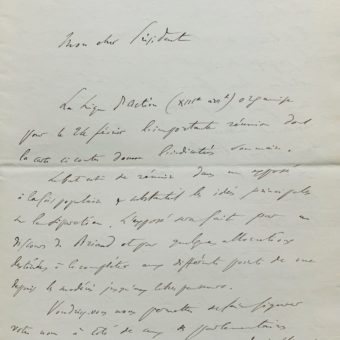 Mon cher Président
La Ligue d'Action (XVIIe arrt) organise
pour le 26 février l'importante réunion dont
la carte ci contre donne l'indication sommaire.
Le but est de réunir dans un exposé
à la fois populaire & substantiel les idées principales
sur la Séparation. L'exposé sera fait par un
discours de Briand et par quelques allocutions
destinées à le compléter aux différents points de vue
depuis le modéré jusqu'au libre penseur.
Voudriez vous nous permettre de faire figurer
votre nom à côté de ceux de parlementaires